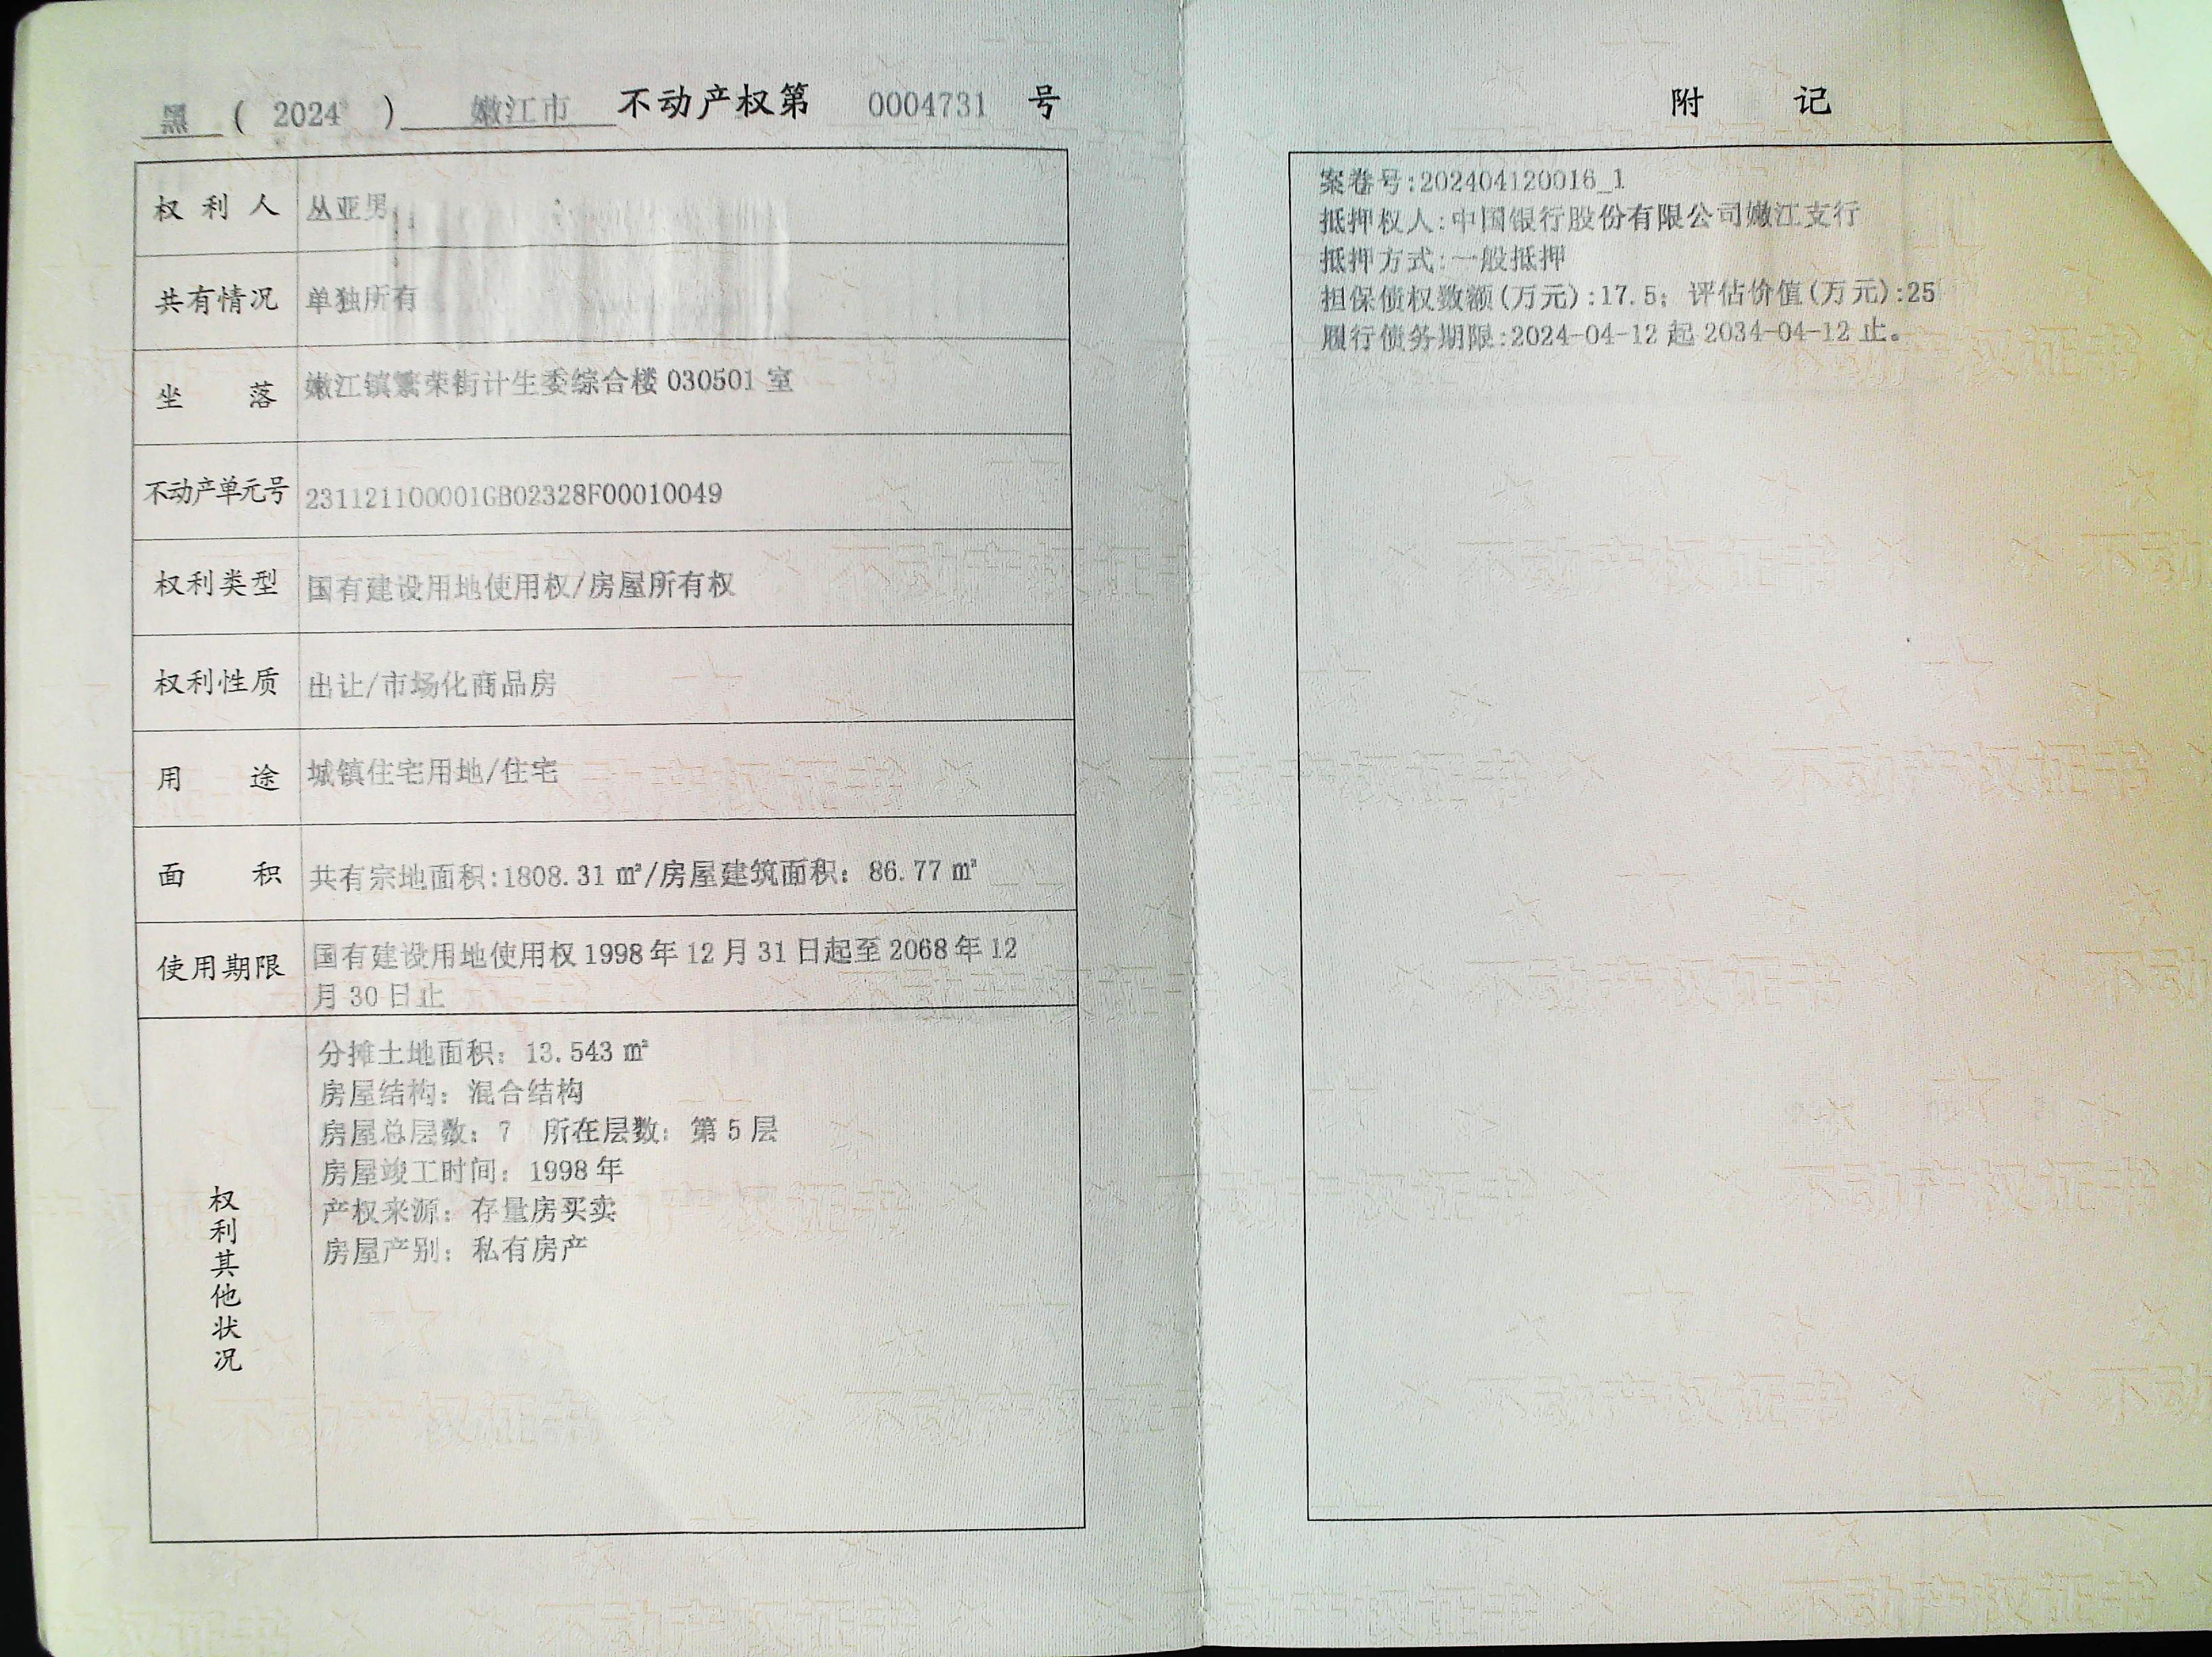 黑 ( 2024 ) 嫩江市 不动产权第 0004731 号
权利人 丛亚男
共有情况 单独所有
坐落 嫩江镇繁荣街计生委综合楼 030501 室
不动产单元号 231121100001GB02328F00010049
权利类型 国有建设用地使用权/房屋所有权
权利性质 出让/市场化商品房
用途 城镇住宅用地/住宅
面积 共有宗地面积:1808.31 ㎡/房屋建筑面积：86.77 ㎡
使用期限 国有建设用地使用权 1998 年 12 月 31 日起至 2068 年 12
月 30 日止
权利其他状况
分摊土地面积：13.543 ㎡
房屋结构：混合结构
房屋总层数：7 所在层数：第 5 层
房屋竣工时间：1998 年
产权来源：存量房买卖
房屋产别：私有房产
附记
案卷号:202404120016_1
抵押权人:中国银行股份有限公司嫩江支行
抵押方式:一般抵押
担保债权数额(万元):17.5；评估价值(万元):25
履行债务期限:2024-04-12 起 2034-04-12 止。